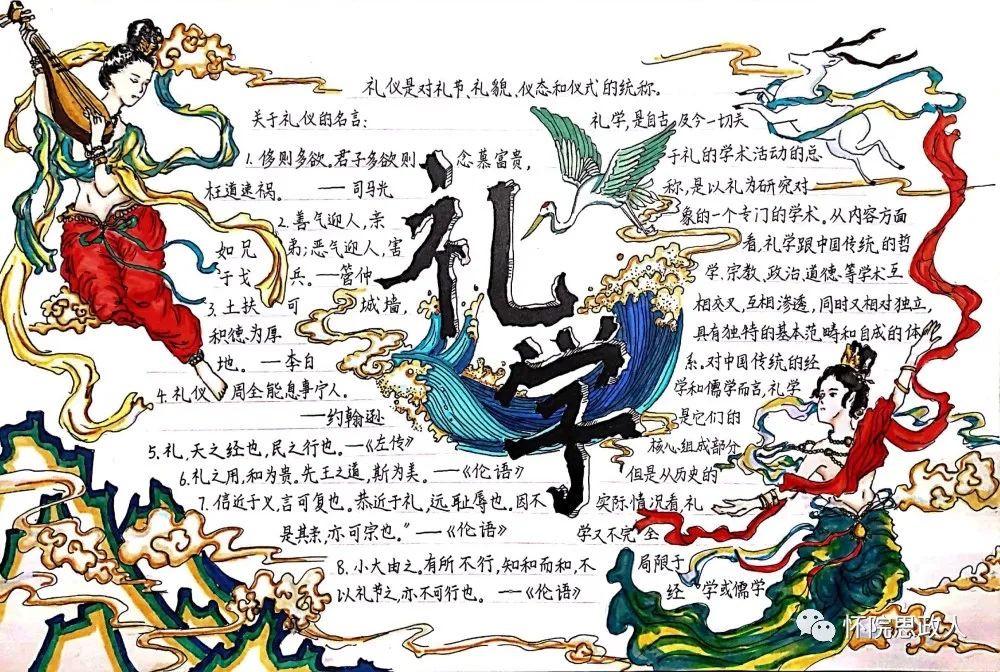 礼仪是对礼节、礼貌、仪态和仪式的统称。
关于礼仪的名言：
1. 侈则多欲。君子多欲则念慕富贵，
枉道速祸。——司马光
2. 善气迎人，亲
如兄弟；恶气迎人，害
于戈兵。——管仲
3. 土扶可城墙，
积德为厚
地。——李白
4. 礼仪周全能息事宁人。
——约翰逊
5. 礼，天之经也，民之行也。——《左传》
6. 礼之用，和为贵。先王之道，斯为美。——《伦语》
7. 信近于义，言可复也。恭近于礼，远耻辱也。因不
是其亲，亦可宗也。”——《伦语》
8. 小大由之。有所不行，知和而和，不
以礼节之，亦不可行也。——《伦语》
礼学
礼学，是自古及今一切关
于礼的学术活动的总
称，是以礼为研究对
象的一个专门的学术。从内容方面
看，礼学跟中国传统的哲
学、宗教、政治道德等学术互
相交叉，互相渗透，同时又相对独立，
具有独特的基本范畴和自成的体
系。对中国传统的经
学和儒学而言，礼学
是它们的
核心组成部分
但是从历史的
实际情况看，礼
学又不完全
局限于
经学或儒学
怀院思政人